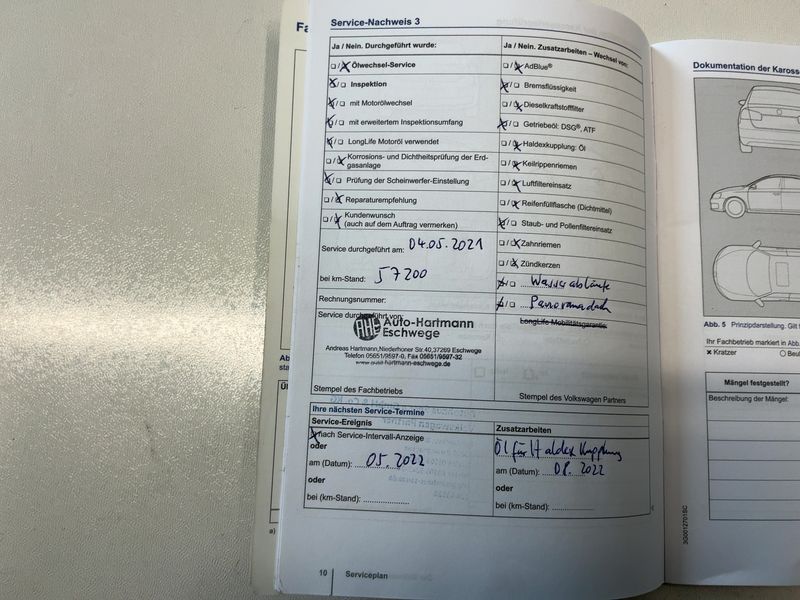 Service-Nachweis 3
Ja / Nein. Durchgeführt wurde:
Ölwechsel-Service
Inspektion
mit Motorölwechsel
mit erweitertem Inspektionsumfang
LongLife Motoröl verwendet
Korrosions- und Dichtheitsprüfung der Erd-
gasanlage
Prüfung der Scheinwerfer-Einstellung
Reparaturempfehlung
Kundenwunsch
(auch auf dem Auftrag vermerken)
Service durchgeführt am: 04.05.2021
bei km-Stand: 57200
Rechnungsnummer:
Service durchgeführt von:
Auto-Hartmann
Eschwege
Andreas Hartmann, Niederhoner Str.40, 37269 Eschwege
Telefon 05651/9597-0, Fax 05651/9597-32
www.auto-hartmann-eschwege.de
Stempel des Fachbetriebs
Ja / Nein. Zusatzarbeiten – Wechsel von:
AdBlue®
Bremsflüssigkeit
Dieselkraftstofffilter
Getriebeöl: DSG®, ATF
Haldexkupplung: Öl
Keilrippenriemen
Luftfiltereinsatz
Reifenfüllflasche (Dichtmittel)
Staub- und Pollenfiltereinsatz
Zahnriemen
Zündkerzen
Wasserabläufe
Panoramadach
LongLife Mobilitätsgarantie
Stempel des Volkswagen Partners
Ihre nächsten Service-Termine
Service-Ereignis
nach Service-Intervall-Anzeige
oder
am (Datum): 05.2022
oder
bei (km-Stand):
Zusatzarbeiten
Öl für Haldex Kupplung
am (Datum): 08.2022
oder
bei (km-Stand):
10 Serviceplan
Dokumentation der Kaross
Abb. 5 Prinzipdarstellung. Gilt
Ihr Fachbetrieb markiert in Abb.
Kratzer
Beul
Mängel festgestellt?
Beschreibung der Mängel:
3G0012701SC
a)